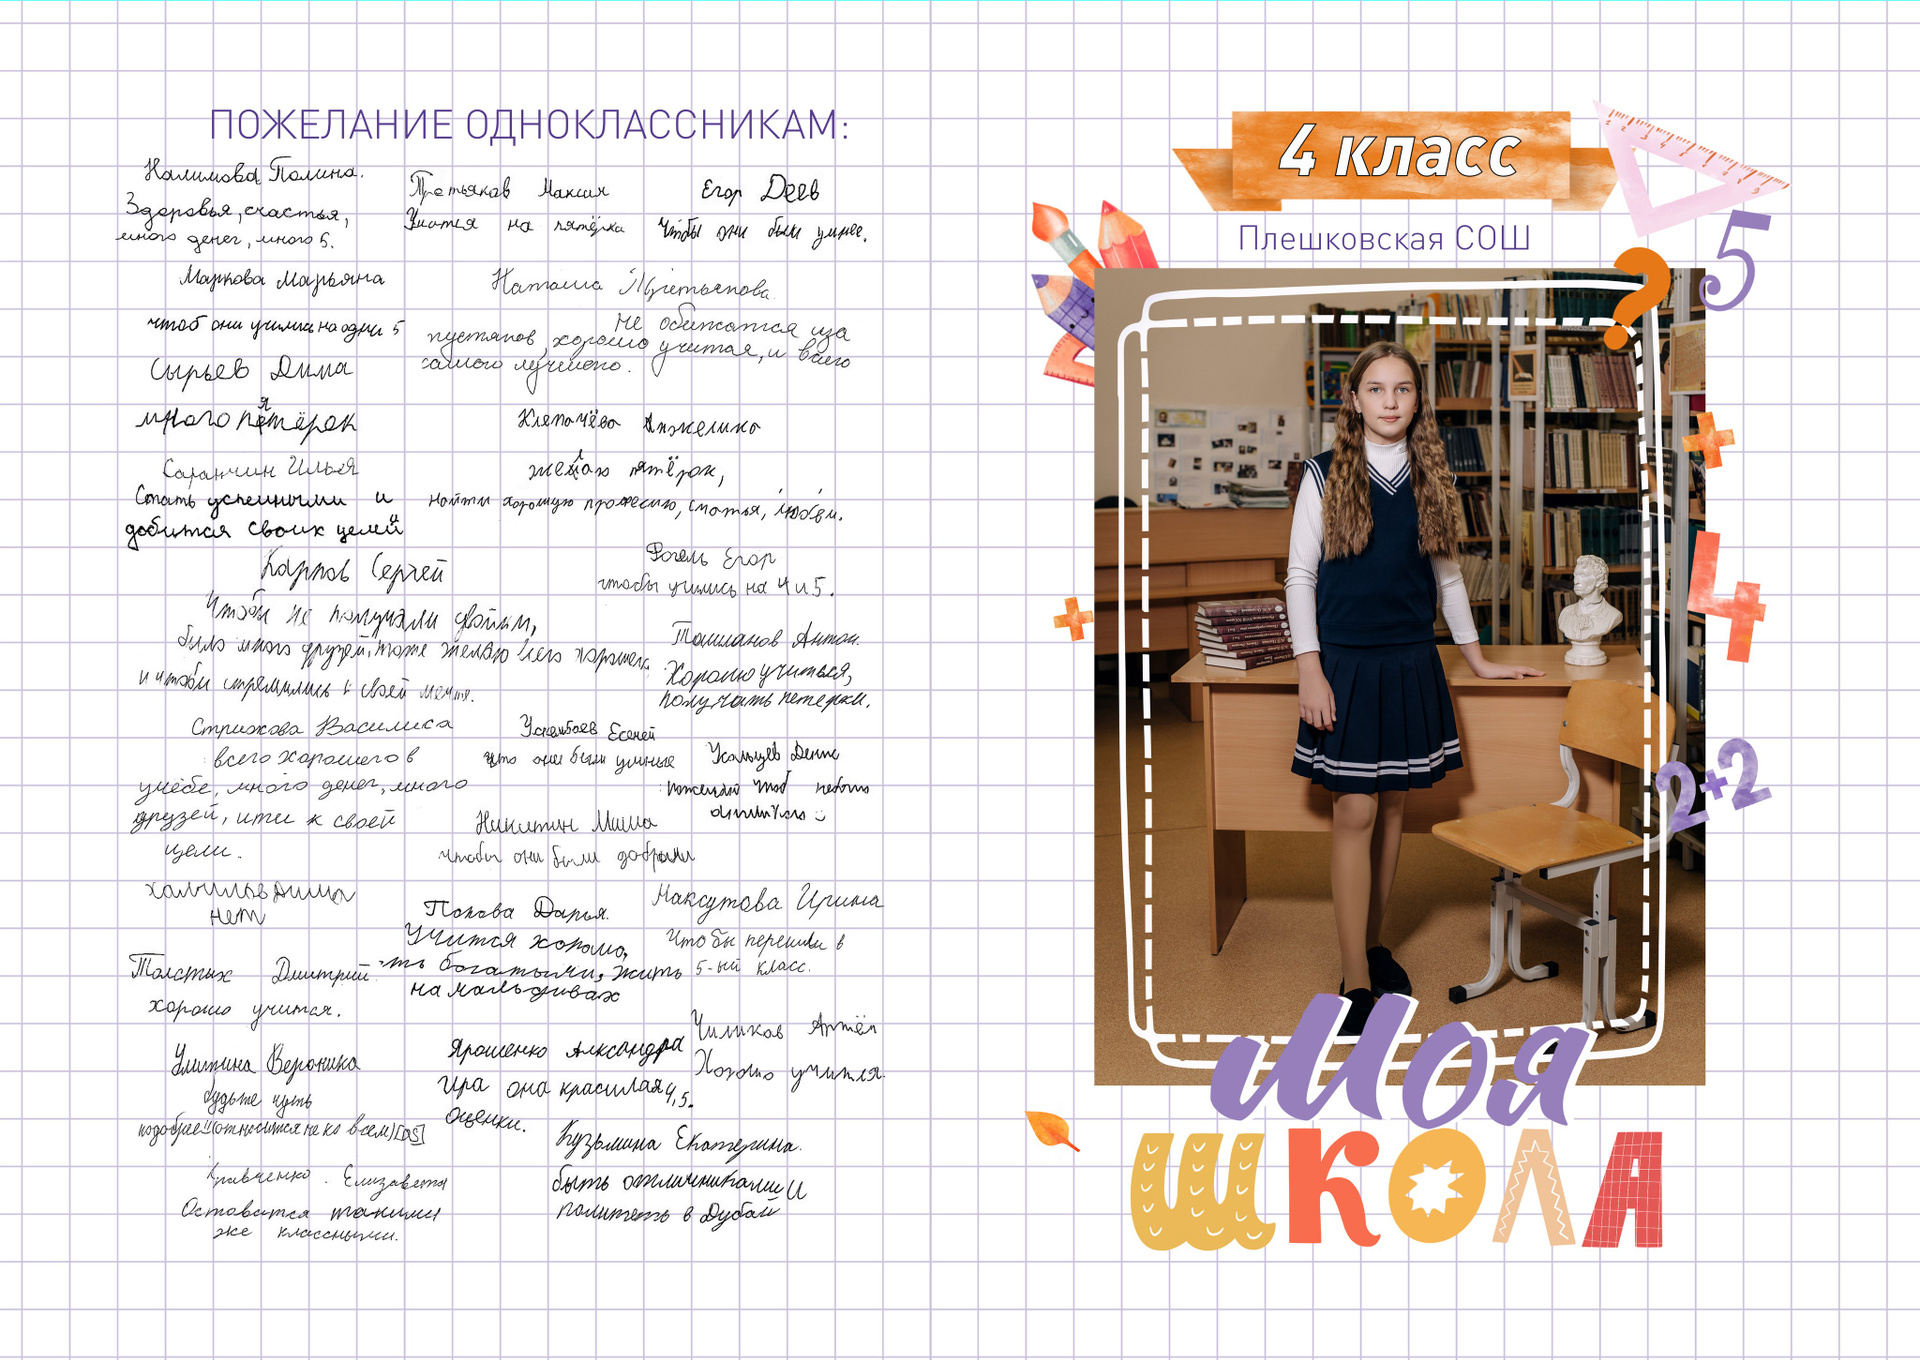 ПОЖЕЛАНИЕ ОДНОКЛАССНИКАМ:
Налимова Полина.
Здоровья, счастья,
много денег, много 5.
Третьяков Максим
Учится на пятёрки
Егор Деев
Чтобы они были умнее.
Маркова Марьяна
чтоб они учились на одни 5
Наташа Третьякова
Не обижатся иза
пустяков, хорошо учится, и всего
самого лучшего.
Сырьев Дима
много пятёрок
Клепачёва Анжелика
желаю пятёрок,
найти хорошую професию, счастья, любви.
Саранчин Илья
Стать успешными и
добится своих целей
Карпов Сергей
Чтобы не получали двойки,
было много друзей, тоже желаю всего хорошего
и чтобы стремились к своей мечте.
Фогель Егор
чтобы учились на 4 и 5.
Ташланов Антон.
Хорошо учиться,
получать петерки.
Стрижова Василиса
всего хорошего в
учёбе, много денег, много
друзей, итти к своей
цели.
Есеней
что они были умные
Денис
Никитин Миша
чтобы они были добрыми
нет
Попова Дарья.
Учится хорошо,
богатыми, жить
на мальдивах
Максутова Ирина
Что бы перешли в
5-ый класс.
Толстых Дмитрий
хорошо учится.
Улитина Вероника
будьте чуть
подобрее!! (относится не ко всем) [05]
Ярошенко Александра
Ира она красивая 4,5.
оценки.
Чиликов Артём
Хорошо учится.
Кравченко. Елизавета
Оставатся такими
же классными.
Кузьмина Екатерина.
быть отличниками и
полететь в Дубай
4 класс
Плешковская СОШ
5
?
+
4
+
2+2
Моя
ШКОЛА